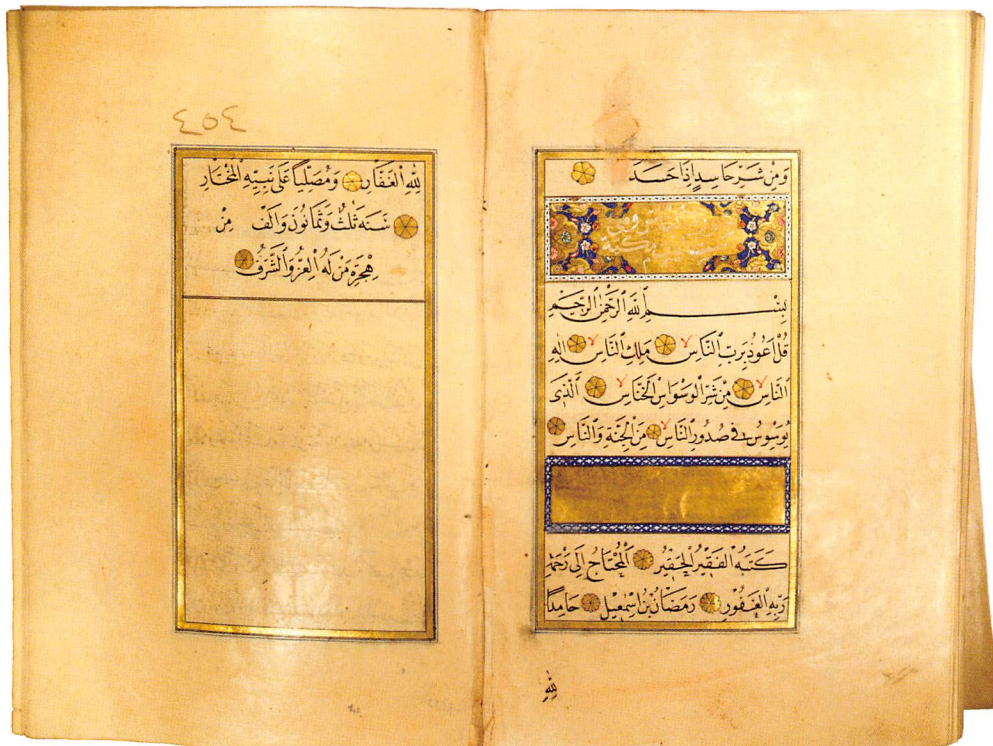 وَمِنْ شَرِّ حَاسِدٍ اِذَا حَسَدَ
بِسْمِ اللّٰهِ الرَّحْمٰنِ الرَّحِيمِ
قُلْ اَعُوذُ بِرَبِّ النَّاسِ لا مَلِكِ النَّاسِ لا اِلٰهِ
النَّاسِ لا مِنْ شَرِّ الْوَسْوَاسِ الْخَنَّاسِ لا اَلَّذِى
يُوَسْوِسُ فِى صُدُورِ النَّاسِ لا مِنَ الْجِنَّةِ وَالنَّاسِ
كَتَبَهُ الْفَقِيرُ الْحَقِيرُ اَلْمُحْتَاجُ اِلَى رَحْمَةِ
رَبِّهِ الْغَفُورِ رَمَضَانُ بْنُ اِسْمٰعِيلَ حَامِدًا
لِلّٰهِ
٤٥٤
لِلّٰهِ الْغَفَّارِ وَمُصَلِّيًا عَلَى نَبِيِّهِ الْمُخْتَارِ
سَنَةَ ثَلٰثٌ وَثَمَانُونَ وَاَلْف مِنْ
هِجْرَةِ مَنْ لَهُ الْعِزُّ وَالشَّرَفُ